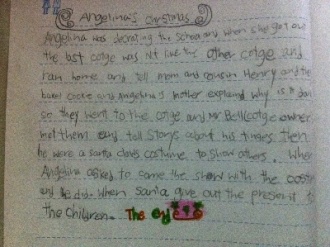 Angelina's Christmas
Angelina was decrating the school and when she got out
the last cotge was nt like the other cotge and
ran home and tell mom and cousin Henry and the
and Angelina's mother explaind why is it
so they went to the cotge and Mr Bell(cotge owner
met them and tell storys about his tines then
he wore a santa claus costume to show others. When
Angelina askes to came the show with the
and he did. When Santa give out the present to
the children. The end